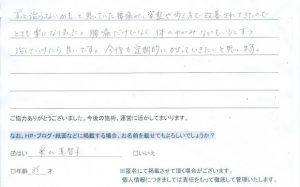 ずっと治らないのかと思っていた腰痛が、姿勢や歩き方で改善されてきたので
とても楽になりました。腰痛だけでなく体のゆがみなども少しずつ
治していけたら良いです。今後も定期的にかよっていきたいと思います。
ご協力ありがとうございました。今後の施術、運営に活かしてまいります。
なお、HP・ブログ・紙面などに掲載する場合、お名前を載せてもよろしいでしょうか?
☑はい 美智子 □いいえ
□年齢 35 才
※匿名にて掲載させて頂く場合がございます。
個人情報につきましては責任をもって徹底して管理いたします。